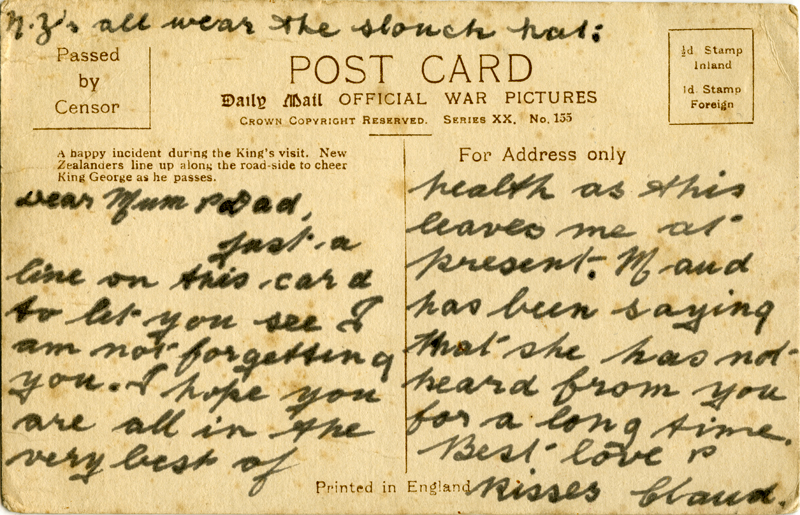 N.Z's all wear the slouch hat:
Passed
by
Censor
POST CARD
Daily Mail OFFICIAL WAR PICTURES
CROWN COPYRIGHT RESERVED. SERIES XX. No. 155
½d. Stamp
Inland
1d. Stamp
Foreign
A happy incident during the King's visit. New
Zealanders line up along the road-side to cheer
King George as he passes.
For Address only
Dear Mum & Dad,
Just a
line on this card
to let you see I
am not forgetting
you. I hope you
are all in the
very best of
health as this
leaves me at
present. Maud
has been saying
that she has not
heard from you
for a long time.
Best love &
Kisses Claud.
Printed in England